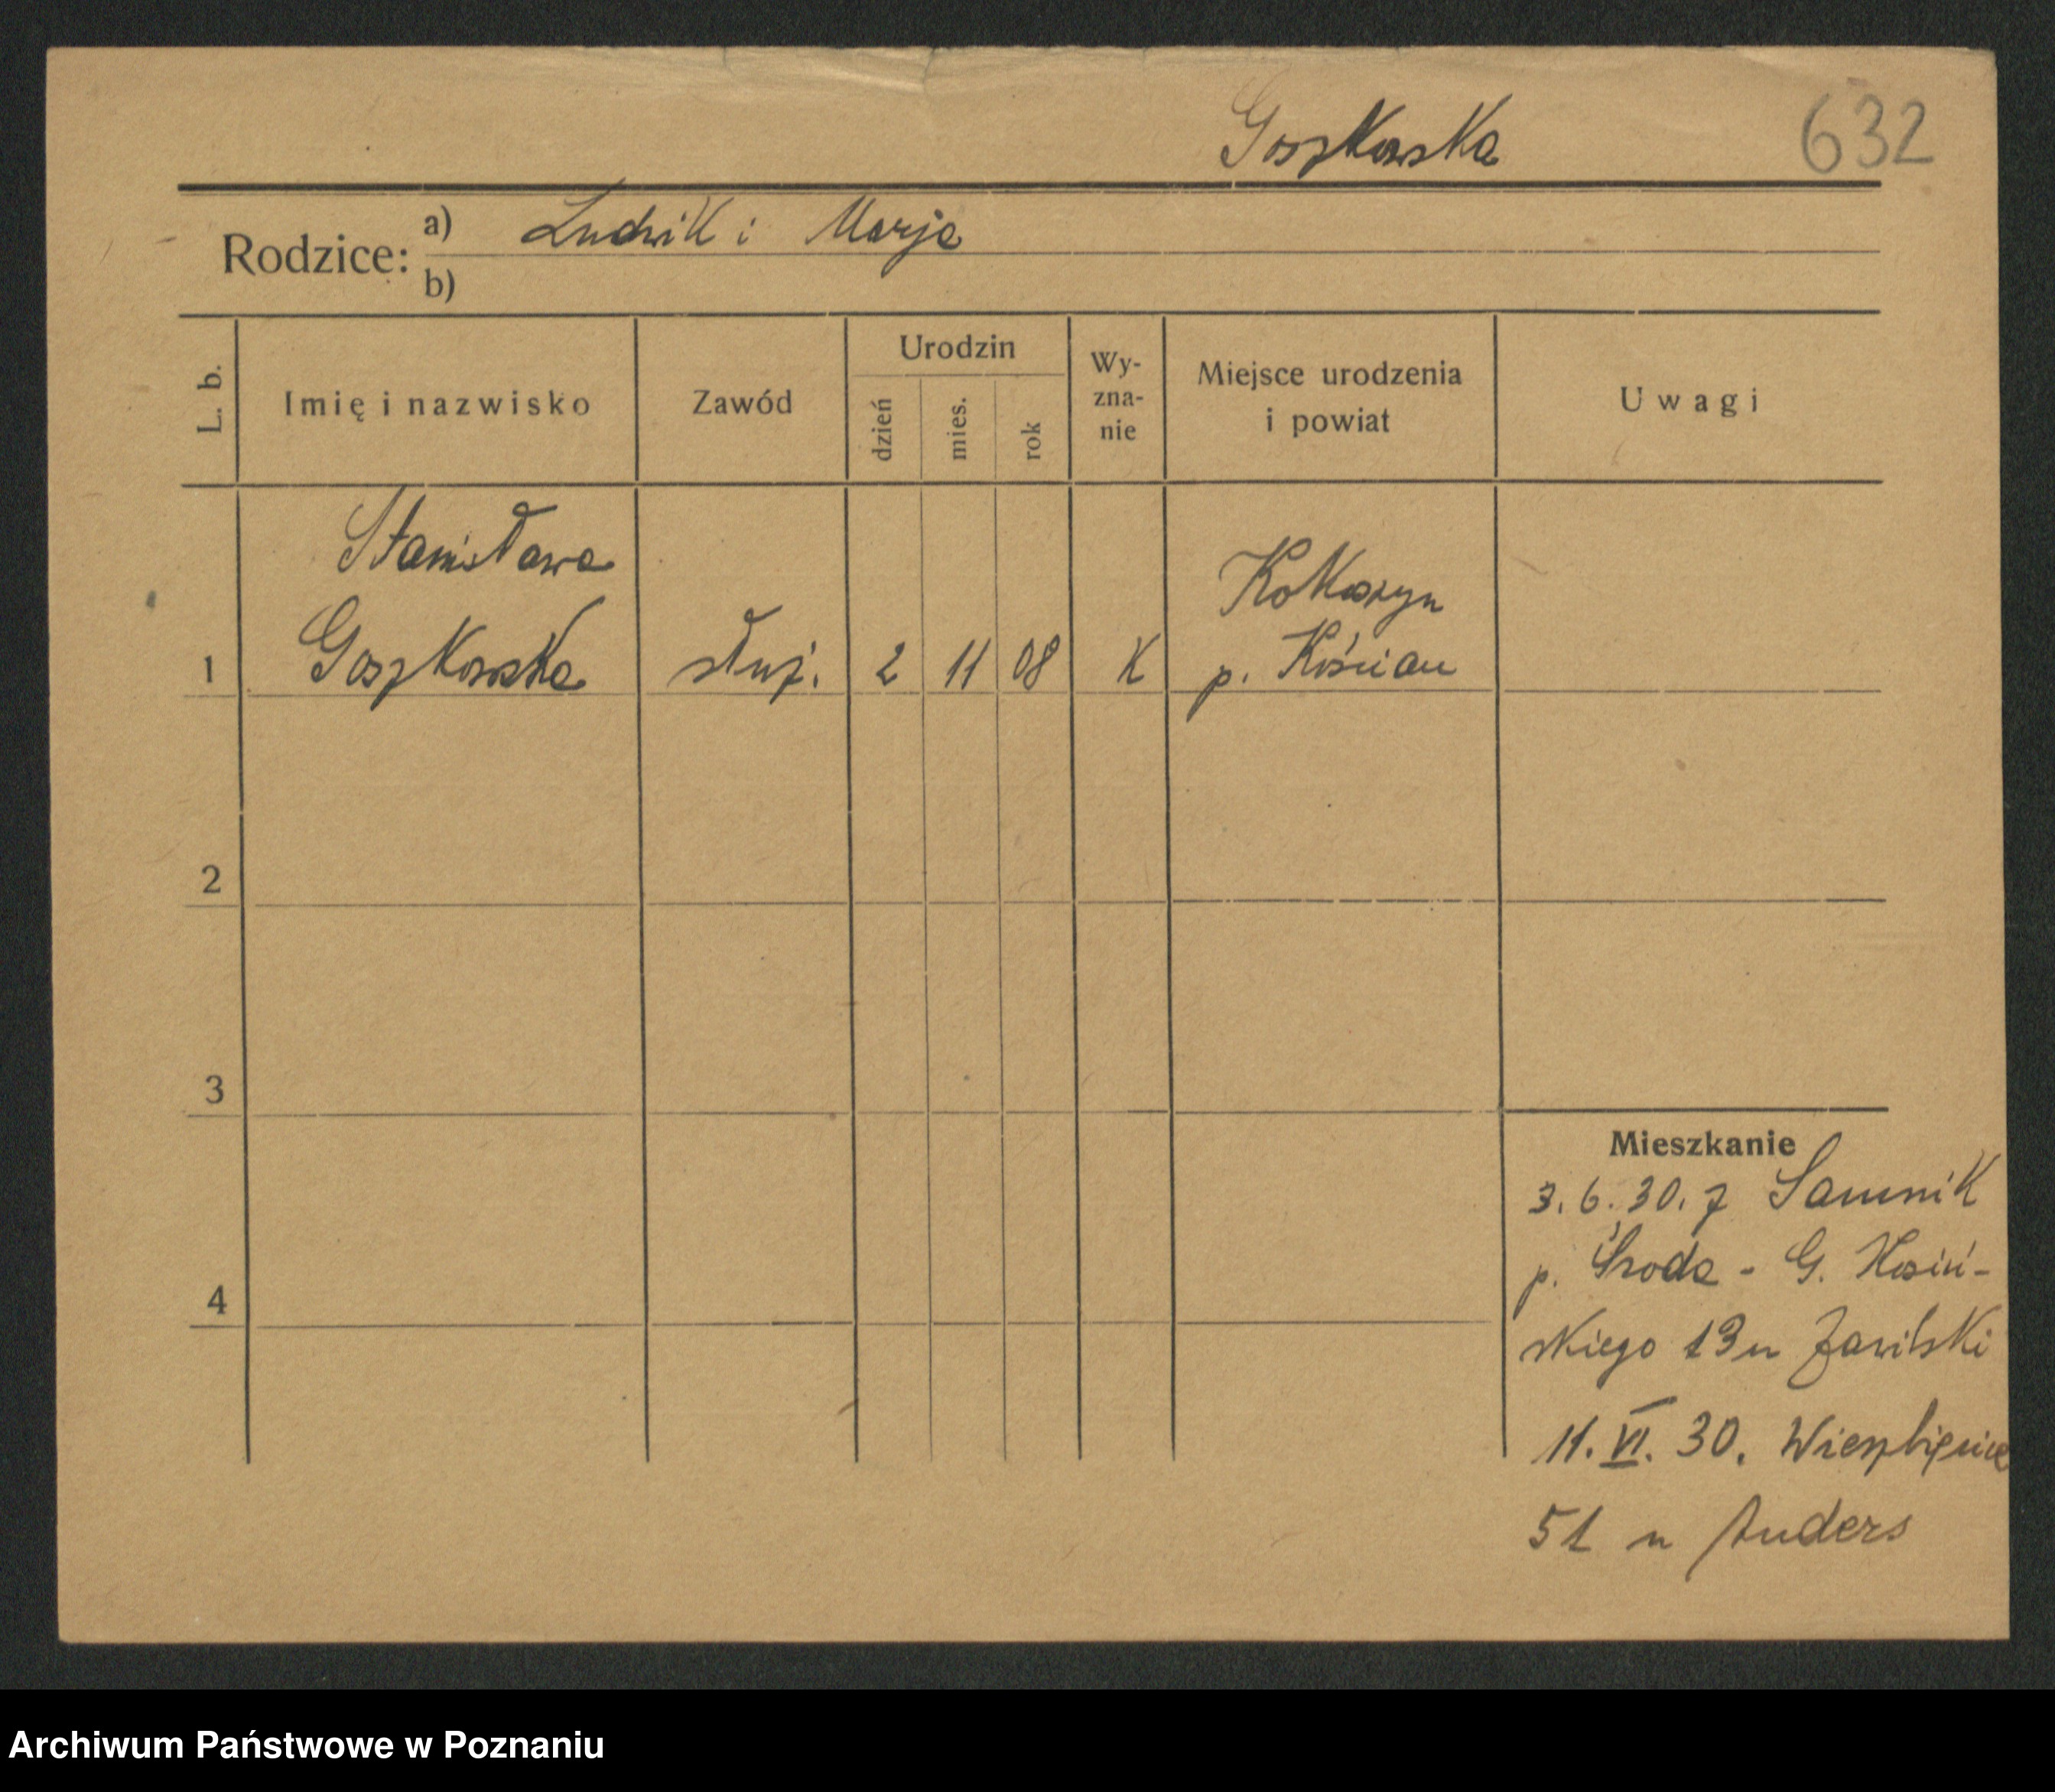 Goszkowska 632
Rodzice: a) Ludwik i Marja
b)
L. b. Imię i nazwisko Zawód Urodzin dzień mies. rok Wy-zna-nie Miejsce urodzenia i powiat Uwagi
Stanisława Kokoszyn
1 Goszkowska służ. 2 11 08 K p. Kościan
2
3
4
Mieszkanie
3. 6. 30. z
p. Środa - G. Kosiń-
skiego 13 u Zawilski
11. VI. 30. Wierzbięcice
51 u Anders
Archiwum Państwowe w Poznaniu